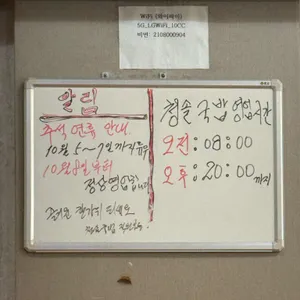 WiFi (와이파이)
5G_LGWiFi_10CC
비번: 2108000904
알림
추석 연휴 안내
10월 5~7일까지 휴무
10월 8일 부터
정상영업합니다
즐거운 한가위 되세요
청솔국밥 영업시간
오전:08:00
오후:20:00까지